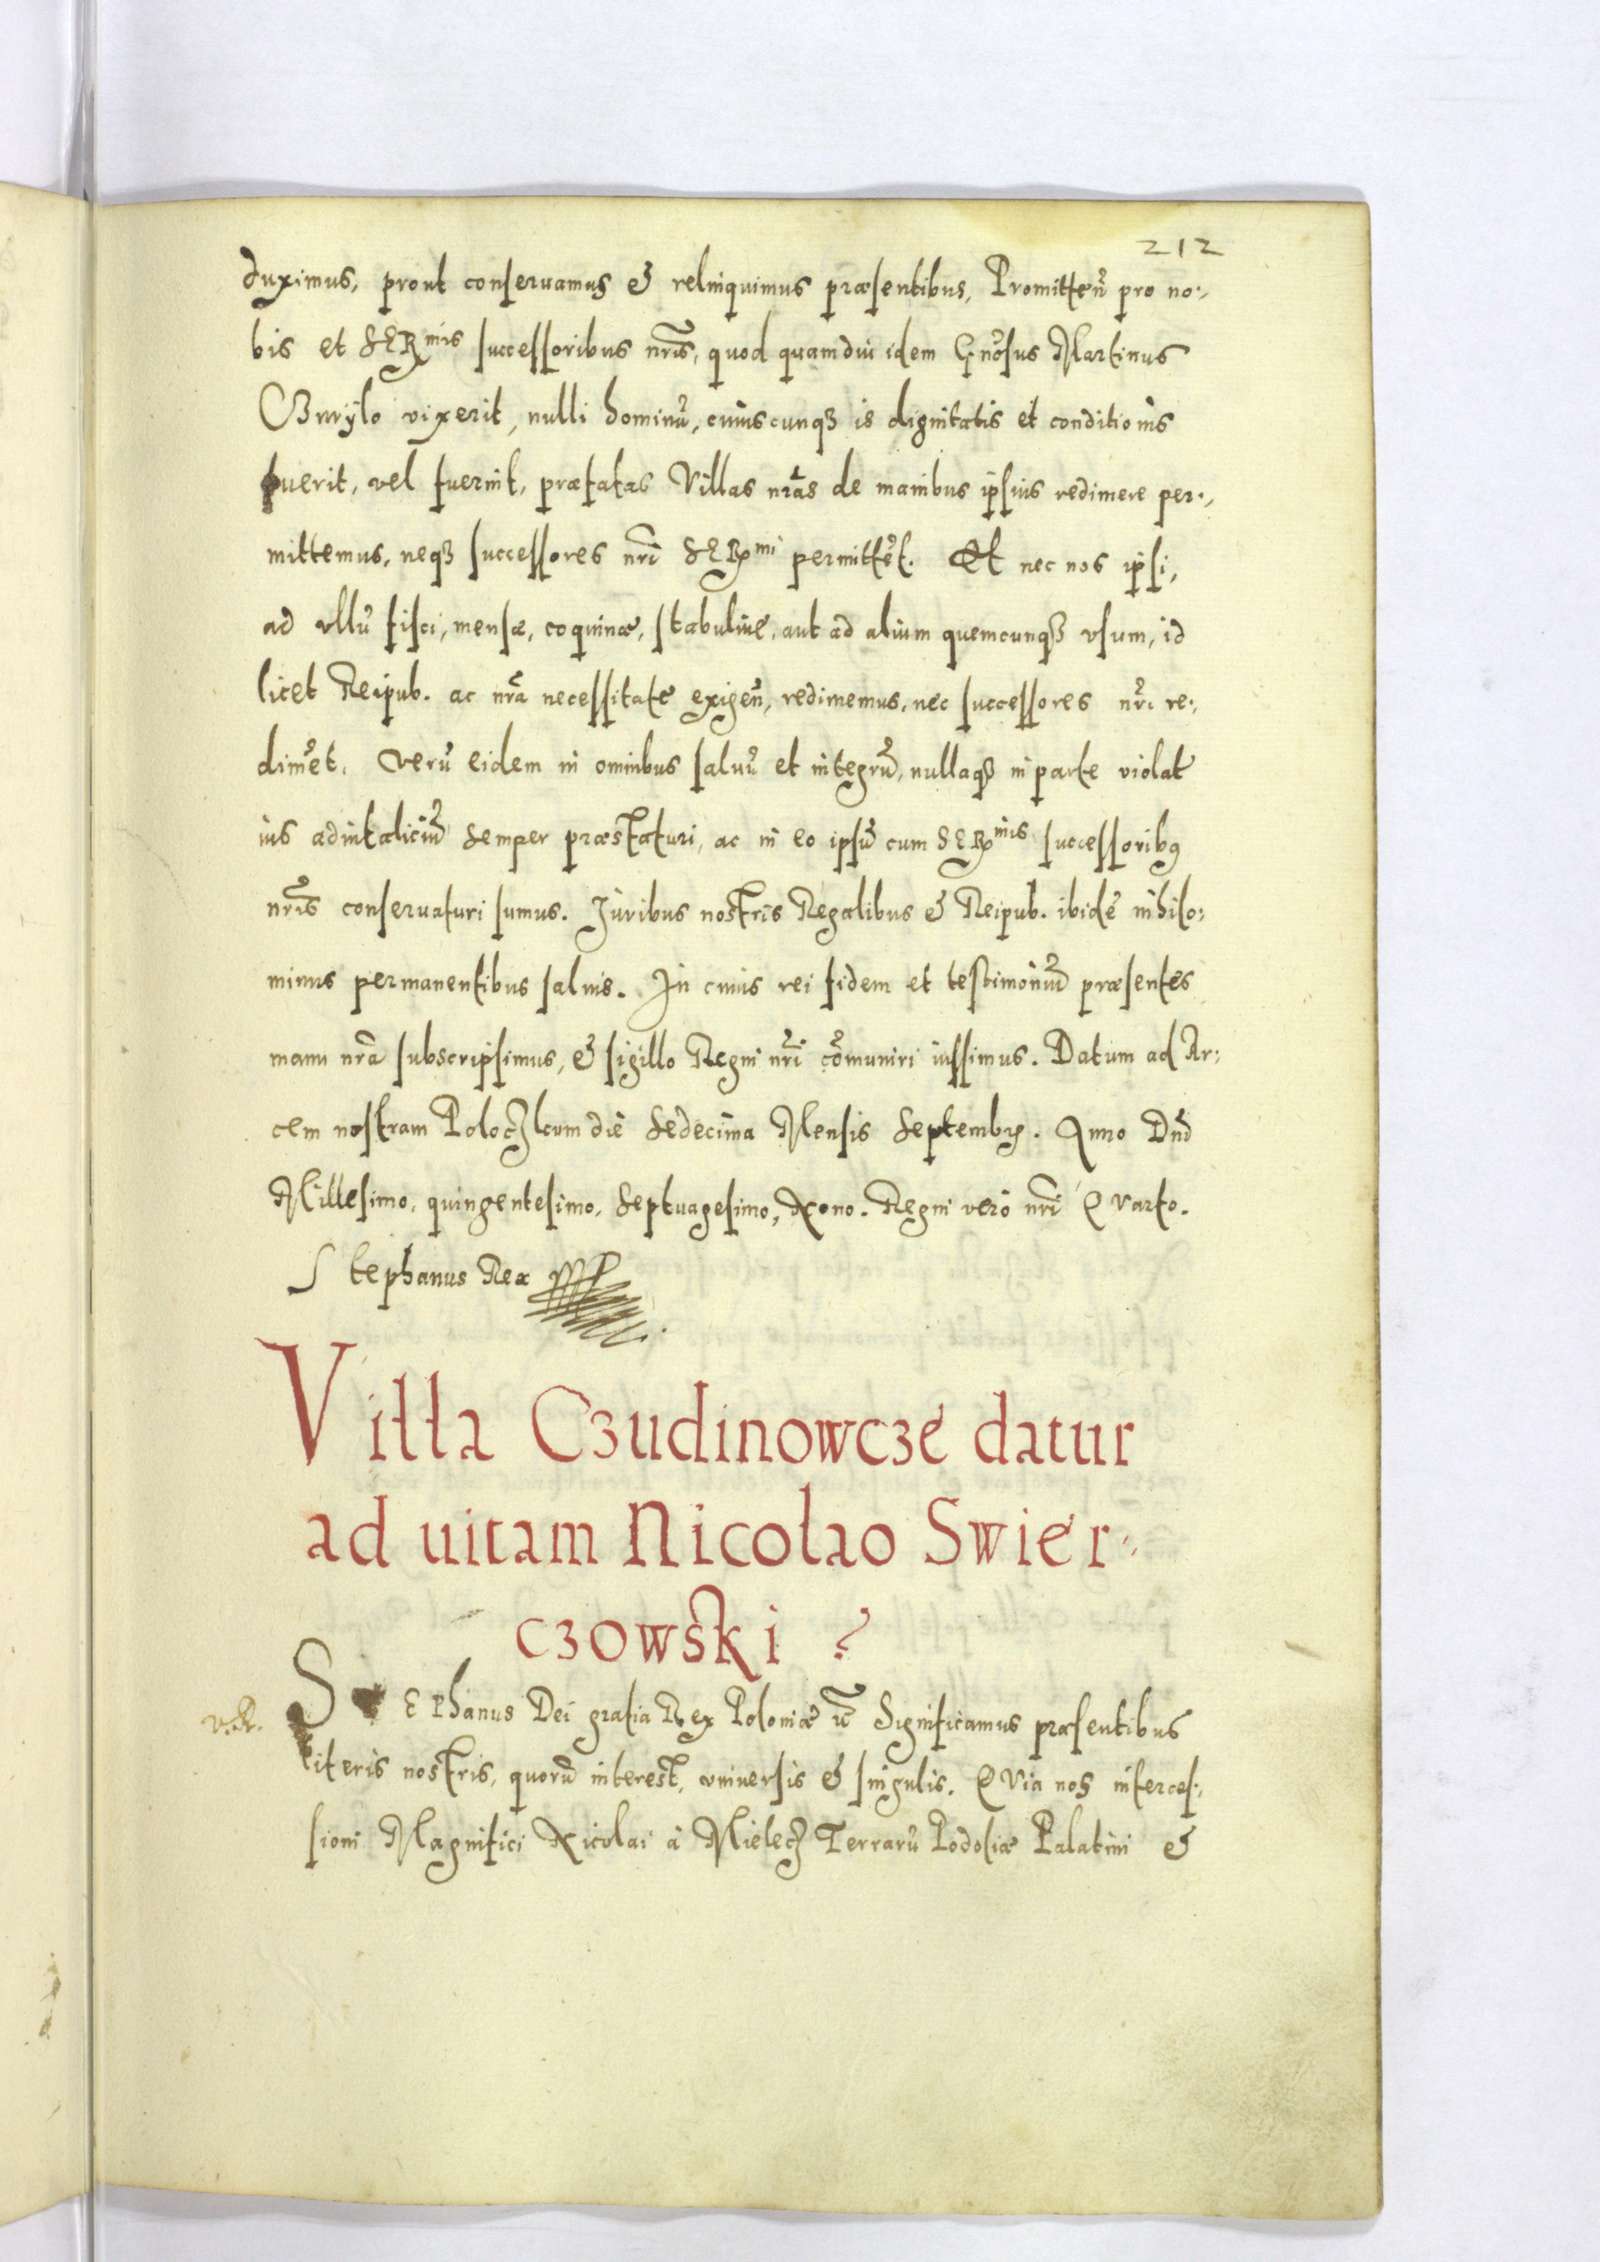 212
duximus, prout conseruamus & relinquimus præsentibus, Promitteñ pro no-
bis et SERmis successoribus nris, quod quamdiu idem Gnosus Martinus
vixerit, nulli hominũ, cuiuscunqȝ is dignitatis et conditionis
fuerit, vel fuerint, præfatas Villas nras de manibus ipsius redimere per-
mittemus, neqȝ successores nri SERmi permittẽt. Et nec nos ipsi,
ad vllũ fisci, mensæ, coquinæ, stabuliue, aut ad alium quemcunqȝ vsum, id
licet Reipub. ac nra necessitate exigeñ, redimemus, nec successores nri re-
dimẽt. Verũ eidem in omnibus saluũ et integrũ, nullaqȝ in parte violat
ius aduitaliciũ semper præstaturi, ac in eo ipsũ cum SERmis successoribꝰ
nris conseruaturi sumus. Juribus nostris Regalibus & Reipub. ibidẽ nihilo-
minus permanentibus saluis. In cuius rei fidem et testimoniũ præsentes
manu nra subscripsimus, & sigillo Regni nri cõmuniri iussimus. Datum ad Ar-
cem nostram Poloczkcum die Sedecima Mensis Septembꝝ. Anno Dnĩ
Millesimo, quingentesimo, Septuagesimo, Nono. Regni vero nri Quarto.
Stephanus Rex
Villa Czudinowcze datur
ad uitam Nicolao Swier-
czowski
StEPhanus Dei gratia Rex Poloniæ Significamus præsentibus
literis nostris, quorũ interest, vniuersis & singulis. QVia nos interces-
sioni Magnifici Nicolai à Mielecz Terrarũ Podoliæ Palatini &